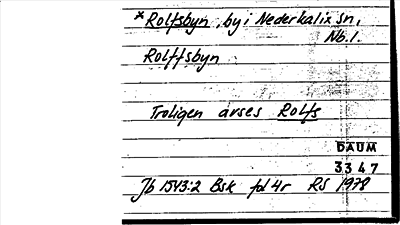 *Rolfsbyn, by i Nederkalix sn,
Nb. l.
Rolffsbyn
Troligen avses Rolfs
DAUM
3347
Jb 1543:2 Bsk fol 4r RS 1978